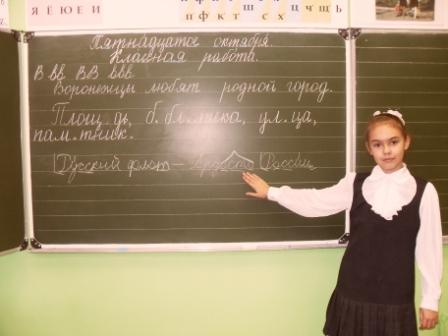 Я Ё Ю Е И
п ф к т ш с х ц ч щ
Пятнадцатое октября.
Классная работа.
В вв ВВ ввв
Воронежцы любят родной город.
Площ.дь, б.бли.тека, ул.ца,
пам.тник.
Русский флот – гордость России